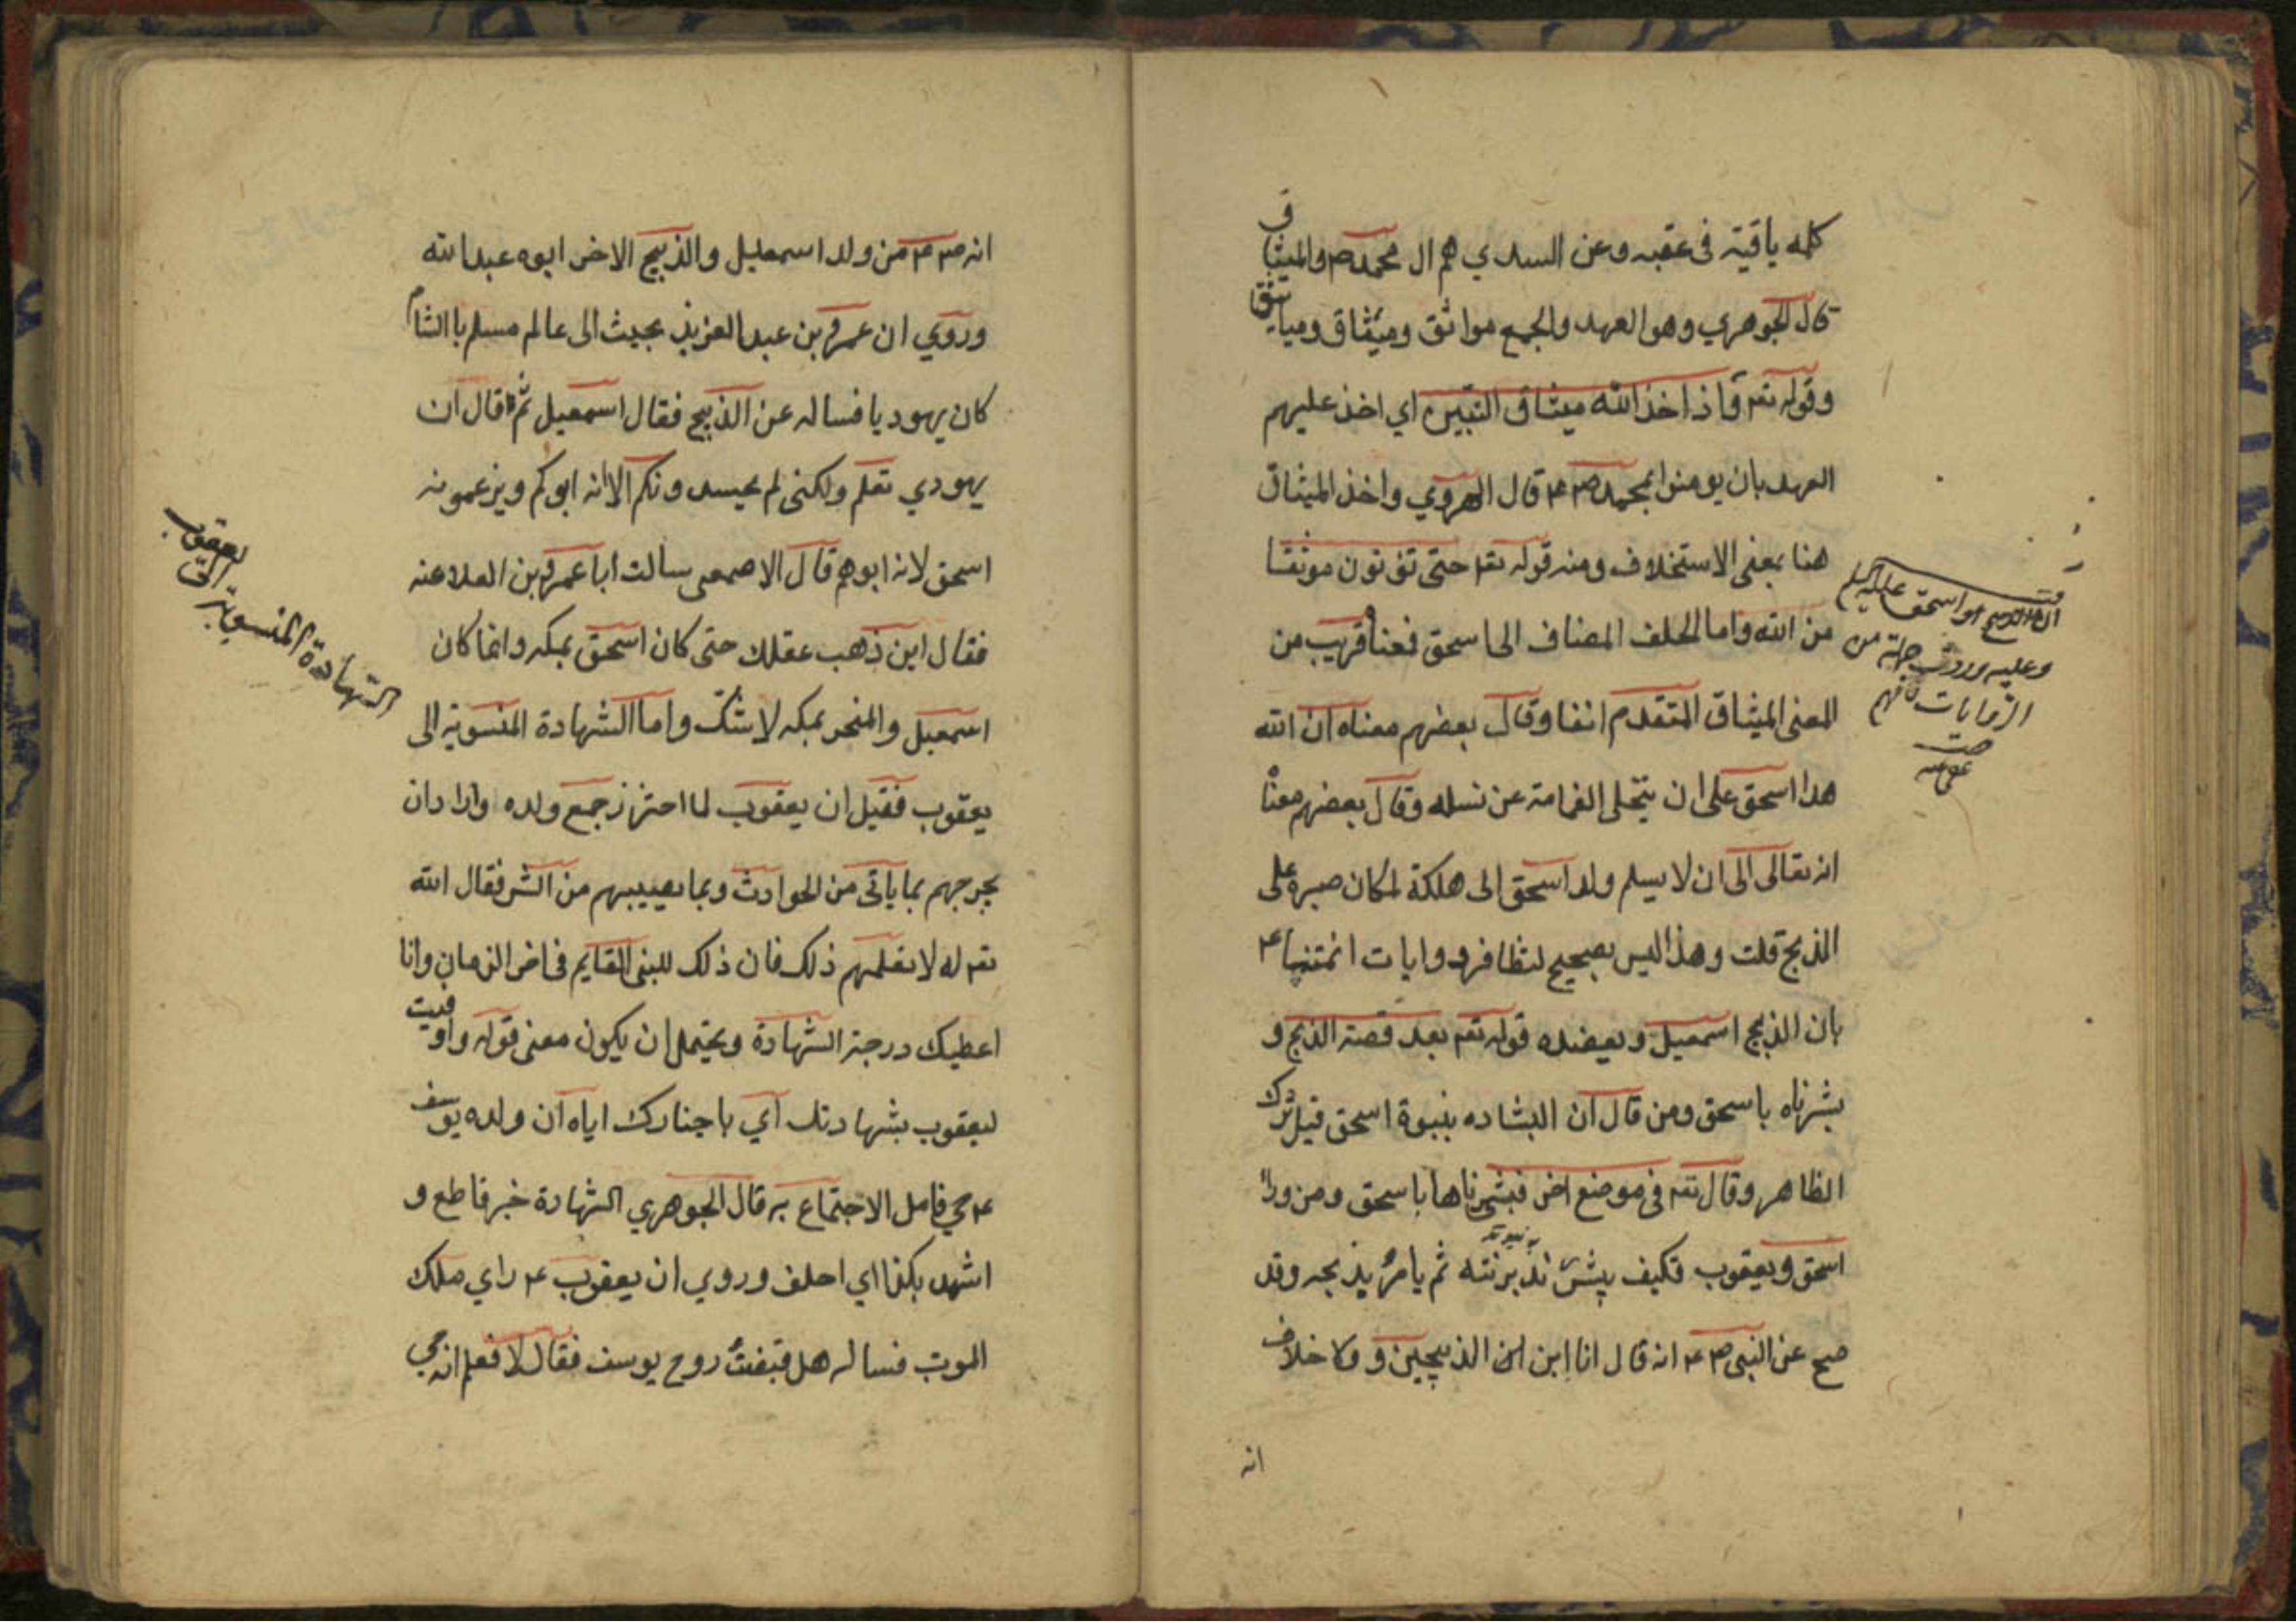 كلمه باقية فى عقبه وعن السدي هم ال محمد ص والميثاق
قال الجوهري وهو العهد والجمع مواثق وميثاق ومياثيق
وقوله تعم واذ اخذ الله ميثاق النبيين اي اخذ عليهم
العهد بان يومنوا بمحمد ص م قال الهروي واخذ الميثاق
هنا بمعنى الاستخلاف ومنه قوله تعا حتى تؤتون موثقا
من الله واما الحلف المضاف الى اسحق فمعناه قريب من
المعنى الميثاق المتقدم انفا وقال بعضهم معناه ان الله
هدا اسحق على ان يتخلى الغمامة عن نسله وقال بعضهم معناه
انه تعالى الى ان لا يسلم ولد اسحق الى هلكة لمكان صبره على
المذبح قلت وهذا ليس بصحيح لتظافر روايات ائمتنا ع
بان الذبيح اسمعيل ويعضده قوله تعم بعد قصة الذبح و
بشرناه باسحق ومن قال ان البشاده بنبوة اسحق قيل ترك
الظاهر وقال تعم فى موضع اخر فبشرناها باسحق ومن ورا
اسحق ويعقوب فكيف يبشر ثم يامر بذبحه وقد
صح عن النبى ص ع انه قال انا ابن الذبيحين ولا خلاف
انه
هو اسحق عليه السلم
وعليه وردت جملة من
الروايات فافهم
انه ص م من ولد اسمعيل والذبيح الاخر ابوه عبد الله
وروي ان عمر بن عبد العزيز بعث الى عالم مسلم باالشام
كان يهوديا فساله عن الذبيح فقال اسمعيل ثم قال ان
يهودي تعلم ولكنى لم يحسدونكم الا انه ابوكم ويزعمونه
اسحق لانه ابوهم قال الاصمعى سالت ابا عمرو بن العلا عنه
فقال اين ذهب عقلك حتى كان اسحق بمكه وانما كان
اسمعيل والمنحر بمكه لا شك واما الشهادة المنسوبة الى
يعقوب فقيل ان يعقوب لما احترز جمع ولده واراد ان
يخرجهم بما ياتى من الحوادث وبما يصيبهم من الشر فقال الله
تعم له لا تعلمهم ذلك فان ذلك للنبى القايم فى اخر الزمان وانا
اعطيك درجة الشهادة ويحتمل ان يكون معنى قوله واوفيت
ليعقوب بشهادتك اي باخبارك اياه ان ولده يوسف
ع حي فامل الاجتماع به قال الجوهري الشهادة خبر قاطع و
اشهد بكذا اي احلف وروي ان يعقوب ع راي ملك
الموت فساله هل قبضت روح يوسف فقال لا فعلم انه حي
الشهادة المنسوبة الى
يعقوب